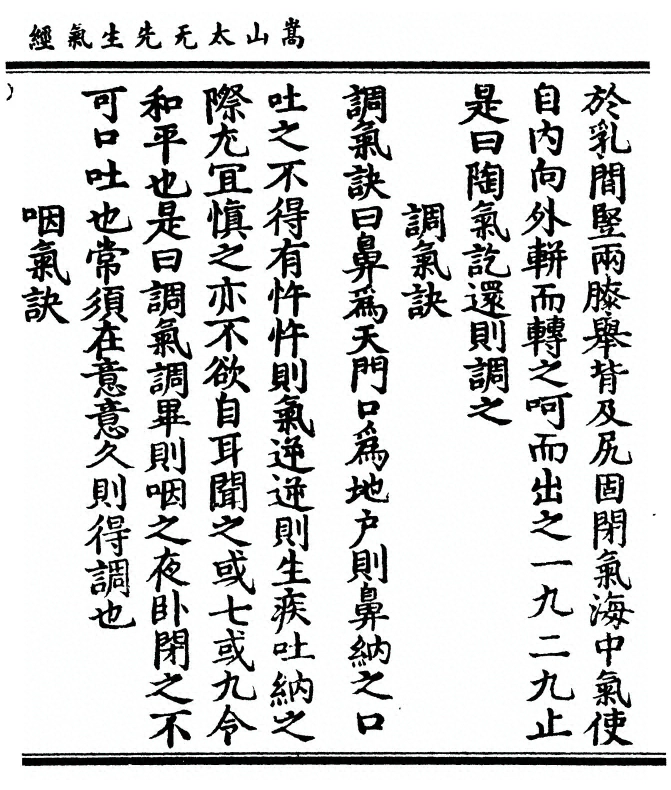 嵩山太无先生氣經
於乳間竪兩膝舉背及尻固閉氣海中氣使
自內向外輧而轉之呵而出之一九二九止
是曰陶氣訖還則調之
調氣訣
調氣訣曰鼻爲天門口爲地户則鼻納之口
吐之不得有忤忤則氣逆逆則生疾吐納之
際尤冝慎之亦不欲自耳聞之或七或九令
和平也是曰調氣調畢則咽之夜卧閉之不
可口吐也常須在意意久則得調也
咽氣訣